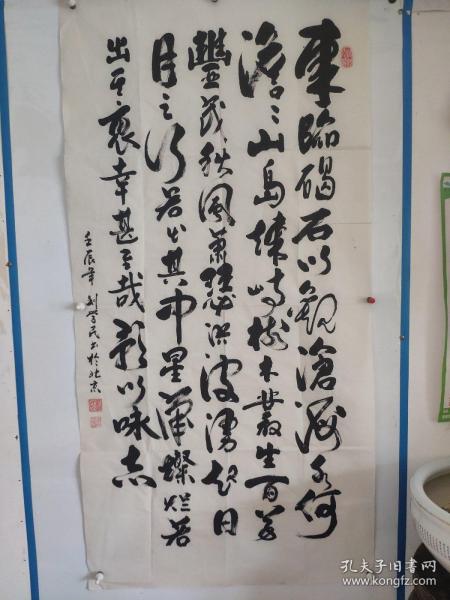 東臨碣石以觀滄海水何
澹〻山島竦峙樹木叢生百草
豐茂秋風蕭瑟洪波湧起日
月之行若出其中星漢燦烂若
出其裏幸甚至哉歌以咏志
壬辰年刘学民书於北京
孔夫子旧书网
www.kongfz.com